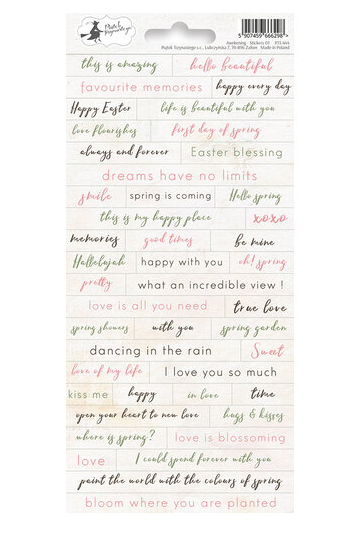 Piątek Trzynastego
5907459666298
Awakening - Stickers 03 P13
Piątek Trzynastego s.c., Lubczyńska 7, 70-895 Załom Made in Poland
this is amazing hello beautiful
favourite memories happy every day
Happy Easter life is beautiful with you
love flourishes first day of spring
always and forever Easter blessing
dreams have no limits
smile spring is coming Hello spring
this is my happy place xoxo
memories good times be mine
Hallelujah happy with you oh! spring
pretty what an incredible view !
love is all you need true love
spring showers with you spring garden
dancing in the rain Sweet
love of my life I love you so much
kiss me happy in love time
open your heart to new love hugs & kisses
where is spring? love is blossoming
love I could spend forever with you
paint the world with the colours of spring
bloom where you are planted